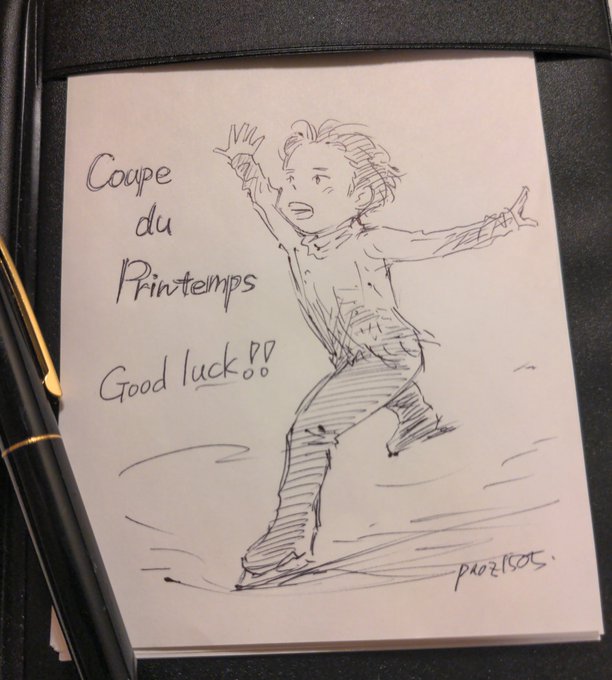 Coupe
du
Printemps
Good luck!!
paoz1505.